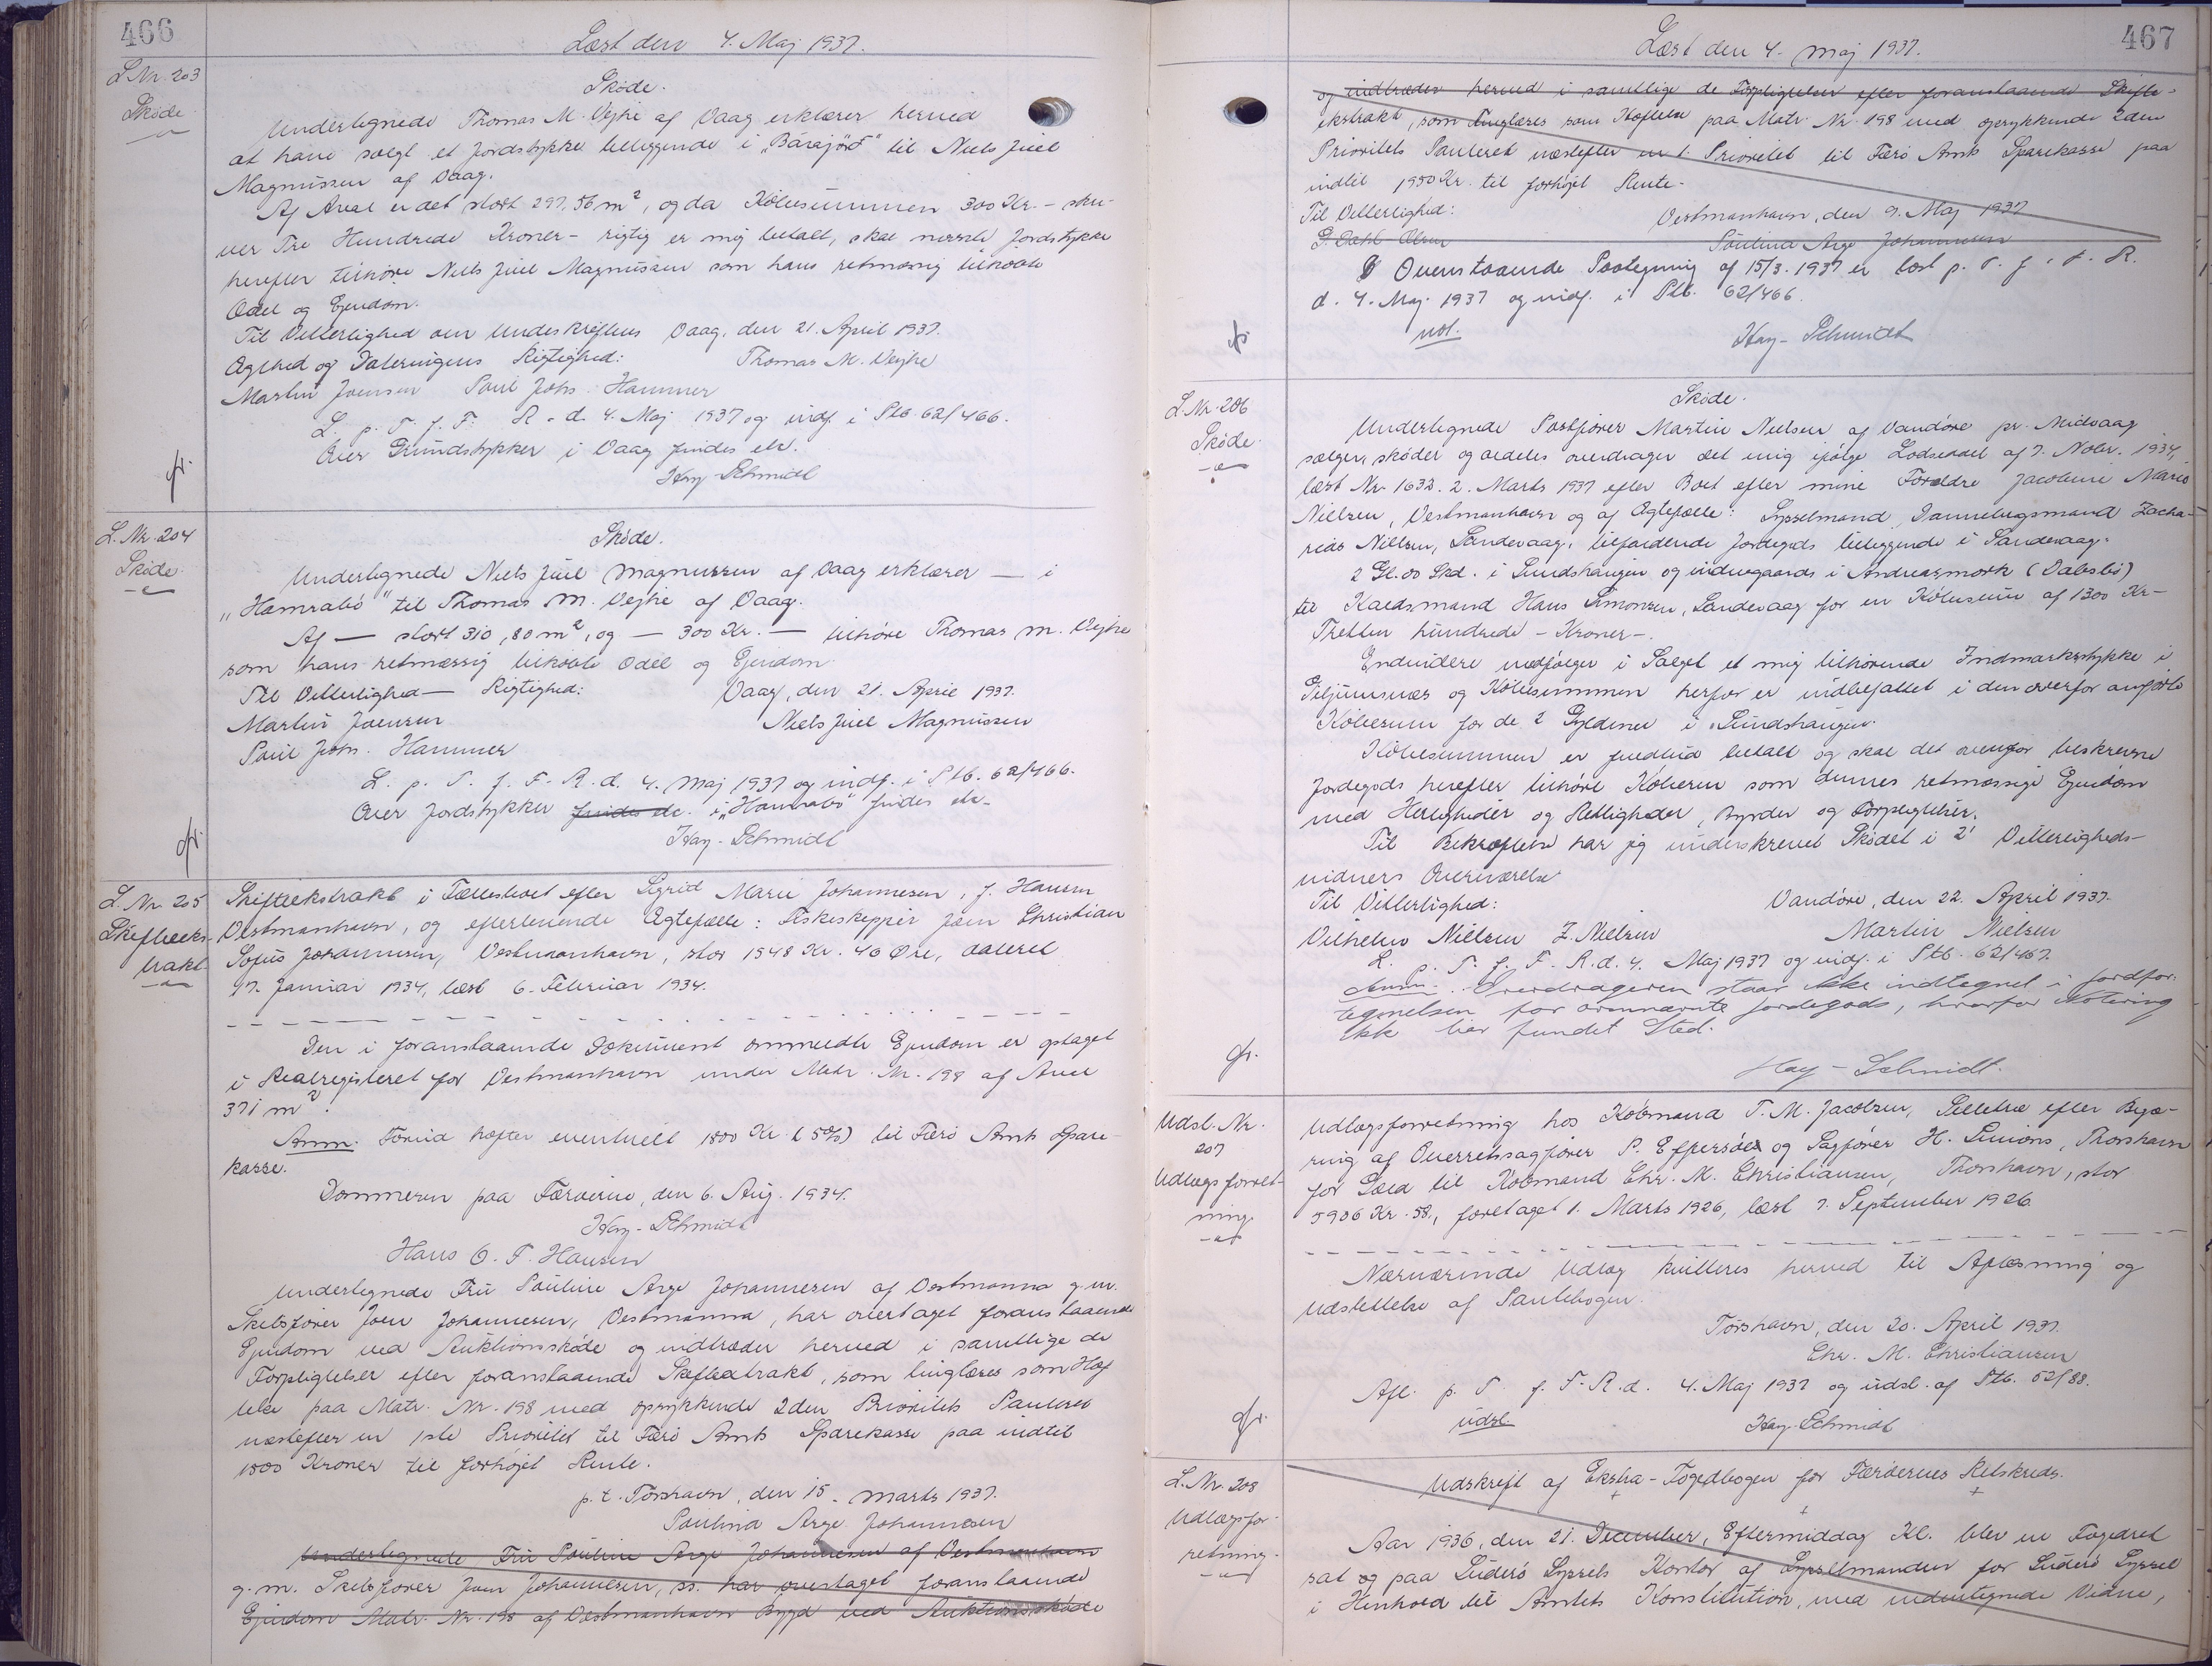 466
Læst den 4. Maj 1937.
L. Nr. 203
Skøde
Skøde.
Undertegnede Thomas M. Vejhe af Vaag erklærer herved
at have solgt et Jordstykke beliggende i „Bárajörð" til Niels Juel
Magnussen af Vaag.
Af Areal er det stort 297,56 m², og da Købesummen 300 Kr. – skri-
ver Tre Hundrede Kroner – rigtig er mig betalt, skal nævnte Jordstykke
herefter tilhøre Niels Juel Magnussen som hans retmæssig tilkøbte
Odel og Ejendom.
Til Vitterlighed om Underskriftens Vaag, den 21. April 1937.
Ægthed og Dateringens Rigtighed: Thomas M. Vejhe
Martin Joensen Poul Johs. Hammer
L. p. T. f. F. R. d. 4. Maj 1937 og indf. i Ptb. 62/466.
Over Grundstykker i Vaag findes etc.
Hay-Schmidt
L. Nr. 204
Skøde
Skøde.
Undertegnede Niels Juel Magnussen af Vaag erklærer — i
„Hamrabö" til Thomas M. Vejhe af Vaag.
Af — stort 310,80 m², og — 300 Kr. — tilhøre Thomas M. Vejhe
som hans retmæssig tilkøbte Odel og Ejendom
Til Vitterlighed — Rigtighed: Vaag, den 21. April 1937.
Martin Joensen Niels Juel Magnussen
Poul Johs. Hammer
L. p. T. f. F. R. d. 4. Maj 1937 og indf. i Ptb. 62/466.
Over Jordstykker findes etc. i „Hamrabö" findes etc.
Hay-Schmidt
L. Nr. 205
Skifteeks-
trakt
Skifteekstrakt i Fællesboet efter Sigrid Marie Johannesen, f. Hansen
Vestmanhavn, og efterlevende Ægtefælle: Fiskeskipper Joen Christian
Sofus Johannesen, Vestmanhavn, stor 1548 Kr. 46 Øre, dateret
17. Januar 1934, læst 6. Februar 1934.
Den i foranstaaende Dokument ommeldte Ejendom er optaget
i Realregisteret for Vestmanhavn under Matr. Nr. 198 af Areal
371 m².
Anm. Forud hæfter eventuelt 1800 Kr. (5%) til Færø Amts Spare-
kasse.
Dommeren paa Færøerne, den 6. Aug. 1934.
Hay-Schmidt
Hans O. F. Hansen
Undertegnede Fru Pauline Arge Johannesen af Vestmanna g. m.
Skibsfører Joen Johannesen, Vestmanna, har overtaget foranstaaende
Ejendom ved Auktionsskøde og indtræder herved i samtlige de
Forpligtelser efter foranstaaende Skifteekstrakt, som tinglæses som Hæf
telse paa Matr. Nr. 198 med oprykkende 2den Prioritets Panteret
næstefter en 1ste Prioritet til Færø Amts Sparekasse paa indtil
1800 Kroner til forhøjet Rente.
p. t. Torshavn, den 15. Marts 1937.
Paulina Arge Johannesen
Undertegnede Fru Pauline Arge Johannesen af Vestmanhavn
g. m. Skibsfører Joen Johannesen, ss. har overtaget foranstaaende
Ejendom Matr. Nr. 198 af Vestmanhavn Bygd ved Auktionsskøde
467
Læst den 4. Maj 1937.
og indtræder herved i samtlige de Forpligtelser efter foranstaaende Skifte-
ekstrakt, som tinglæses som Hæftelse paa Matr. Nr. 198 med oprykkende 2den
Prioritets Panteret næstefter en 1. Prioritet til Færø Amts Sparekasse paa
indtil 1950 Kr. til forhøjet Rente.
Til Vitterlighed: Vestmanhavn, den 9. Maj 1937
G. Dahl Olsen Paulina Arge Johannesen
Ovenstaaende Paategning af 15/3. 1937 er læst p. T. f. F. R.
d. 4. Maj 1937 og indf. i Ptb. 62/466.
not. Hay-Schmidt
L. Nr. 206
Skøde
Skøde.
Undertegnede Postfører Martin Nielsen af Vandøre pr. Midvaag
sælger, skøder og aldeles overdrager det mig ifølge Lodseddel af 7. Nobr. 1934,
læst Nr. 1632. 2. Marts 1937 efter Boet efter mine Forældre Jacobine Marie
Nielsen, Vestmanhavn og af Ægtefælle: Sysselmand, Dannebrogsmand Zacha-
rias Nielsen, Sandevaag, tilfaldende Jordegods beliggende i Sandevaag:
2 Gl. 00 Skd. i Sundshaugen og indengaards i Andreasmørk (Dalsbö)
til Kaadsmand Hans Simonsen, Sandevaag for en Købesum af 1300 Kr –
Tretten hundrede – Kroner –.
Endvidere medfølger i Salget et mig tilhørende Indmarksstykke i
Giljumsnæs og Købesummen herfor er indbefattet i den overfor anførte
Købesum for de 2 Gyldener i Sundshaugen.
Købesummen er fuldtud betalt og skal det ovenfor beskrevne
Jordegods herefter tilhøre Køberen som dennes retmæssige Ejendom
med Herligheder og Rettigheder, Byrder og Forpligtelser.
Til Bekræftelse har jeg underskrevet Skødet i 2 Vitterligheds-
vidners Overværelse
Til Vitterlighed: Vandøre, den 22. April 1937.
Vilhelm Nielsen Z. Nielsen Martin Nielsen
L. p. T. f. F. R. d. 4. Maj 1937 og indf. i Ptb. 62/467.
Anm. Overdrageren staar ikke indtegnet i Jordfor-
tegnelsen for ovennævnte Jordegods, hvorfor Notering
ikke har fundet Sted.
Hay-Schmidt.
Udsl. Nr.
207
Udlægsforret-
ning
Udlægsforretning hos Købmand T. M. Jacobsen, Selletræ efter Begæ-
ring af Overretssagfører P. Effersøe og Sagfører H. Simons, Thorshavn
for Gæld til Købmand Chr. M. Christiansen, Thorshavn, stor
5906 Kr. 58., foretaget 1. Marts 1926, læst 7. September 1926.
Nærværende Udlæg kvitteres herved til Aflæsning og
Udslettelse af Pantebogen.
Torshavn, den 20. April 1937.
Chr. M. Christiansen
Afl. p. T. f. F. R. d. 4. Maj 1937 og udsl. af Ptb. 52/88.
udsl. Hay-Schmidt
L. Nr. 208
Udlægsfor-
retning
Udskrift af Ekstra-Fogedbogen for Færøernes Retskreds.
Aar 1936, den 21. December, Eftermiddag Kl. blev en Fogedret
sat og paa Suderø Syssels Kontor af Sysselmanden for Suderø Syssel
i Henhold til Amtets Konstitution, med undertegnede Vidne,